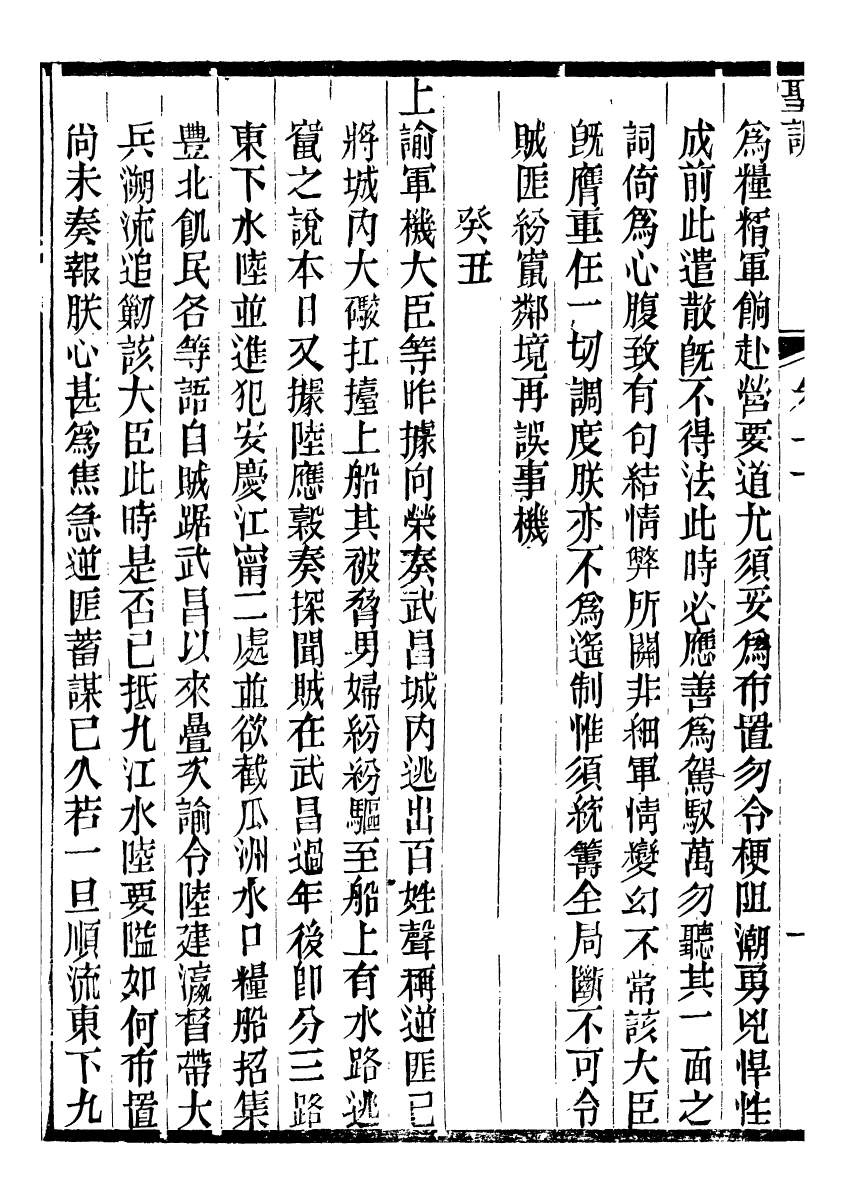 聖訓
爲糧糈軍餉赴營要道尤須妥爲布置勿令梗阻潮勇兇悍性
成前此遣散旣不得法此時必應善爲駕馭萬勿聽其一面之
詞倚爲心腹致有句結情弊所關非細軍情變幻不常該大臣
旣膺重任一切調度朕亦不爲遙制惟須統籌全局斷不可令
賊匪紛竄鄰境再誤事機
癸丑
上諭軍機大臣等昨據向榮奏武昌城內逃出百姓聲稱逆匪已
將城內大礮扛擡上船其被脅男婦紛紛驅至船上有水路逃
竄之說本日又據陸應穀奏探聞賊在武昌過年後卽分三路
東下水陸並進犯安慶江甯二處並欲截瓜洲水口糧船招集
豐北飢民各等語自賊踞武昌以來疊次諭令陸建瀛督帶大
兵溯流追勦該大臣此時是否已抵九江水陸要隘如何布置
尚未奏報朕心甚爲焦急逆匪蓄謀已久若一旦順流東下九